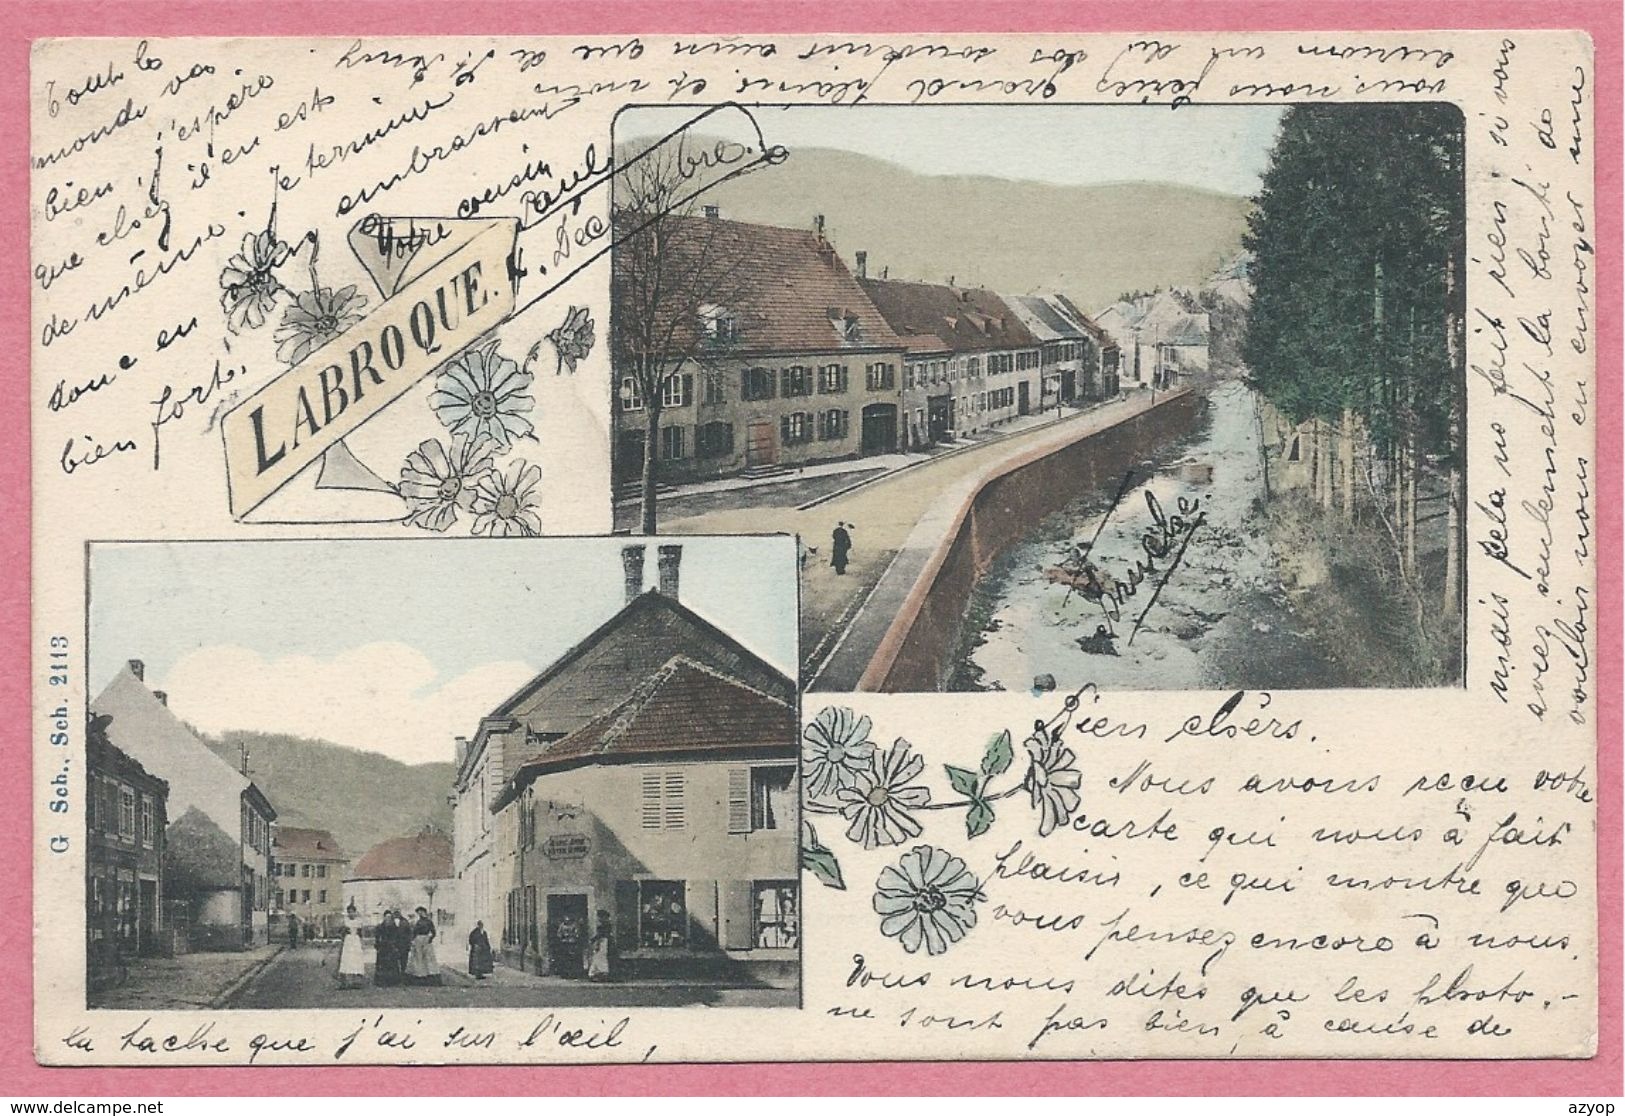 LABROQUE.
4. Décembre.
Bruche.
G Sch., Sch. 2113
Bien chèrs.
Nous avons reçu votre
carte qui nous à fait
plaisir, ce qui montre que
vous pensez encore à nous.
Vous nous dites que les photo.-
ne sont pas bien, à cause de
la tache que j'ai sur l'œil,
mais pela ne fait rien, si vous
avez seulement la bonté de
vouloir nous en envoyer une
vous nous feriez grand plaisir et moins
aurions un de vos souvenir ainsi que de St Rémy
Tout le
monde va
bien, j'espère
que chez il en est
de même. Je termine
donc en vous embrassant
bien fort.
Votre cousin
Paul
azyop